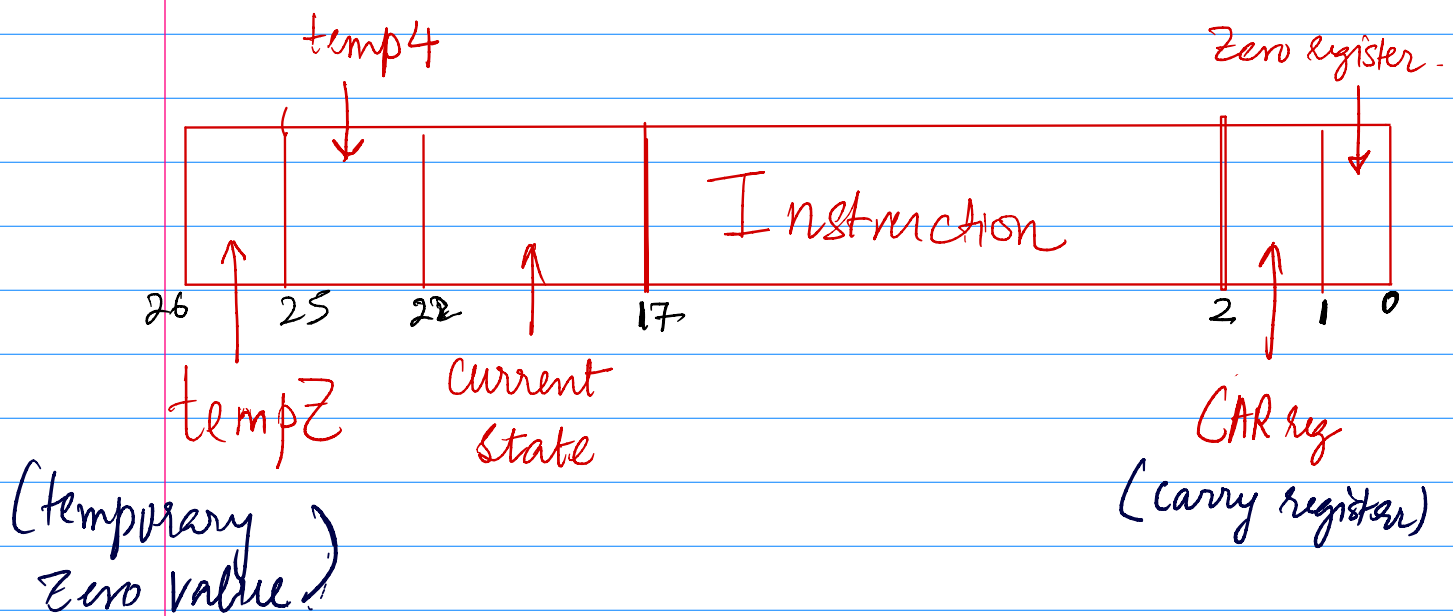 temp4
Zero register.
Instruction
26 25 22 17 2 1 0
tempZ
current
state
CAR reg
(temporary
zero value)
(carry register)